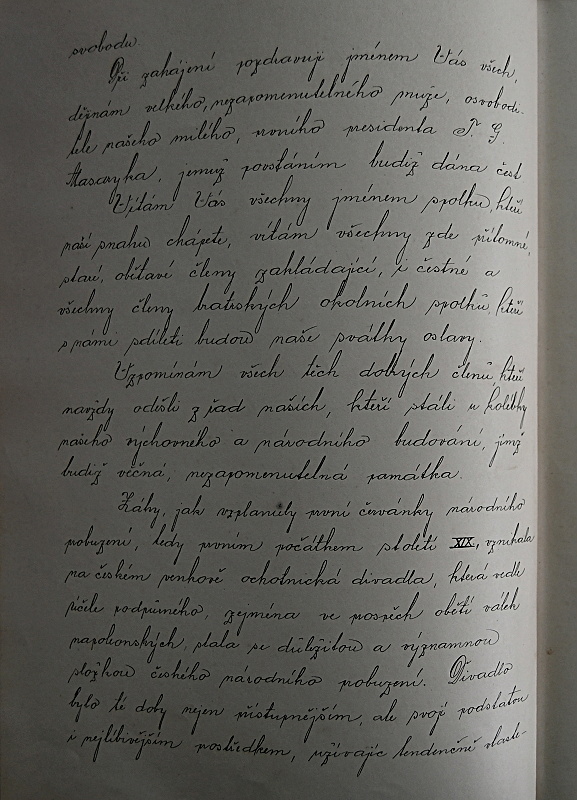 svobodu.
Při zahájení pozdravuji jménem Vás všech,
dějinám velkého, nezapomenutelného muže, osvobodi-
tele našeho milého, prvního presidenta T. G.
Masaryka, jemuž povstáním budiž dána čest
Vítám Vás všechny jménem spolku, kteří
naší snahu chápete, vítám všechny zde přítomné,
staré, obětavé členy zakládající, i čestné a
všechny členy bratrských okolních spolků, kteří
s námi sdíleti budou naše svátky oslavy.
Vzpomínám všech těch dobrých členů, kteří
navždy odešli z řad našich, kteří stáli u kolébky
našeho výchovného a národního budování, jimž
budiž věčná, nezapomenutelná památka.
Záhy, jak vzplanuly první červánky národního
probuzení, tedy prvním počátkem století XIX, vznikala
na českém venkově ochotnická divadla, která vedle
účele podpůrného, zejména ve prospěch obětí válek
napoleonských, stala se důležitou a významnou
složkou českého národního probuzení. Divadlo
bylo té doby nejen přístupnějším, ale svojí podstatou
i nejlibivějším prostředkem, užívajíc tendenčně vlaste-